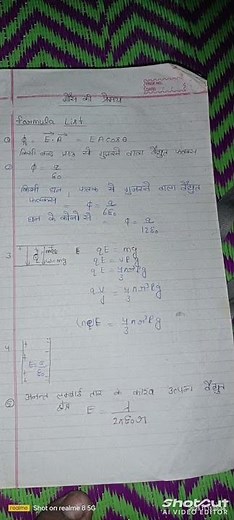 गौस की प्रमेय
Formula List
① ϕ = E.A = EA cosθ
किसी बन्द पृष्ठ से गुजरने वाला वैद्युत फ्लक्स
② ϕ = q/ε₀
किसी घन फलक से गुजरने वाला वैद्युत
फ्लक्स ϕ = q/6ε₀
घन के कोनो से = ϕ = q/12ε₀
3 qE = mg
qE = vρg
qE = 4/3 πr³ρg
= 4/3 πr³ρg
E = 4/3 πr³ρg
4
⑤ अनन्त लम्बाई तार के कारण उत्पन्न वैद्युत
क्षेत्र E = λ/2πε₀r
realme Shot on realme 8 5G
ShotCut
AI VIDEO EDITOR